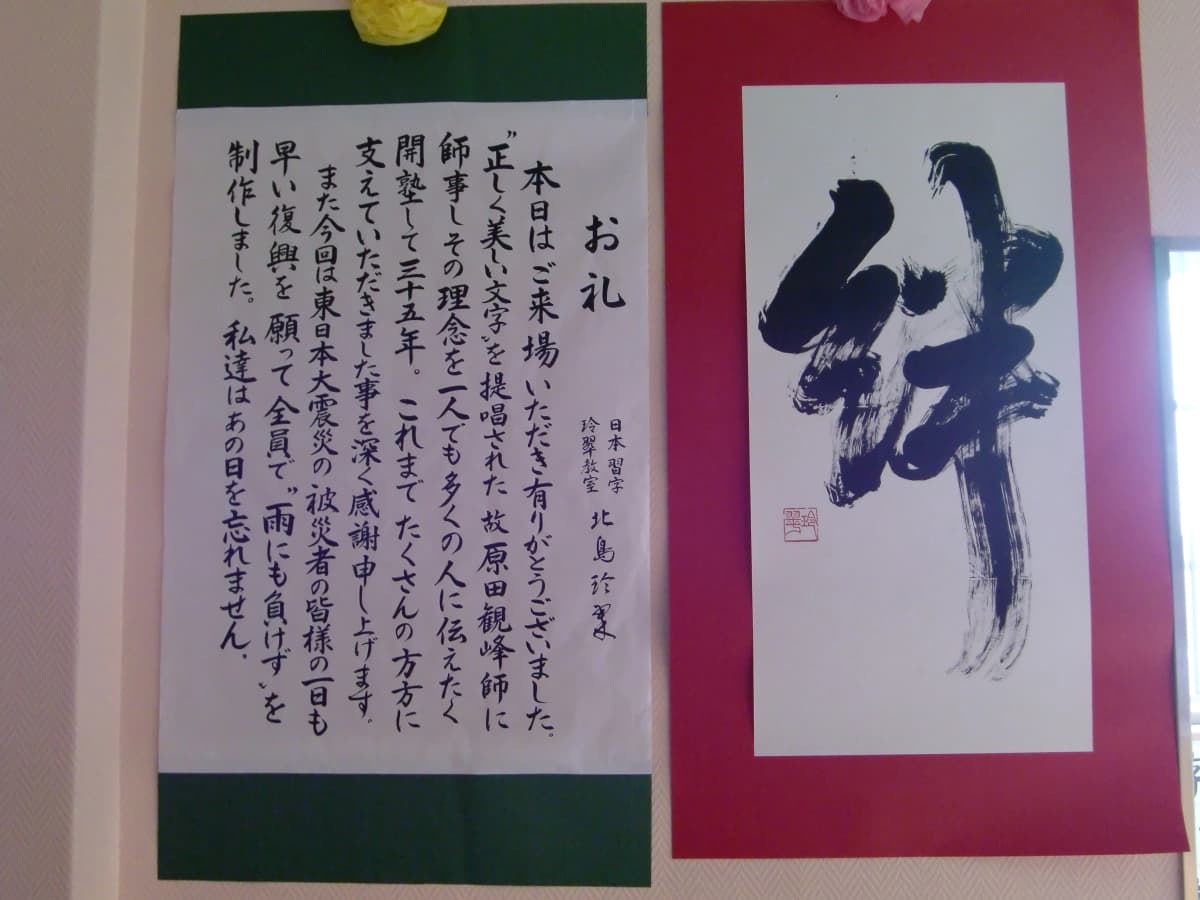 絆
玲翠
お礼
日本習字
玲翠教室
北島玲翠
本日はご来場いただき有りがとうございました。
〝正しく美しい文字〟を提唱された故原田観峰師に
師事しその理念を一人でも多くの人に伝えたく
開塾して三十五年。これまでたくさんの方方に
支えていただきました事を深く感謝申し上げます。
また今回は東日本大震災の被災者の皆様の一日も
早い復興を願って全員で〝雨にも負けず〟を
制作しました。私達はあの日を忘れません。